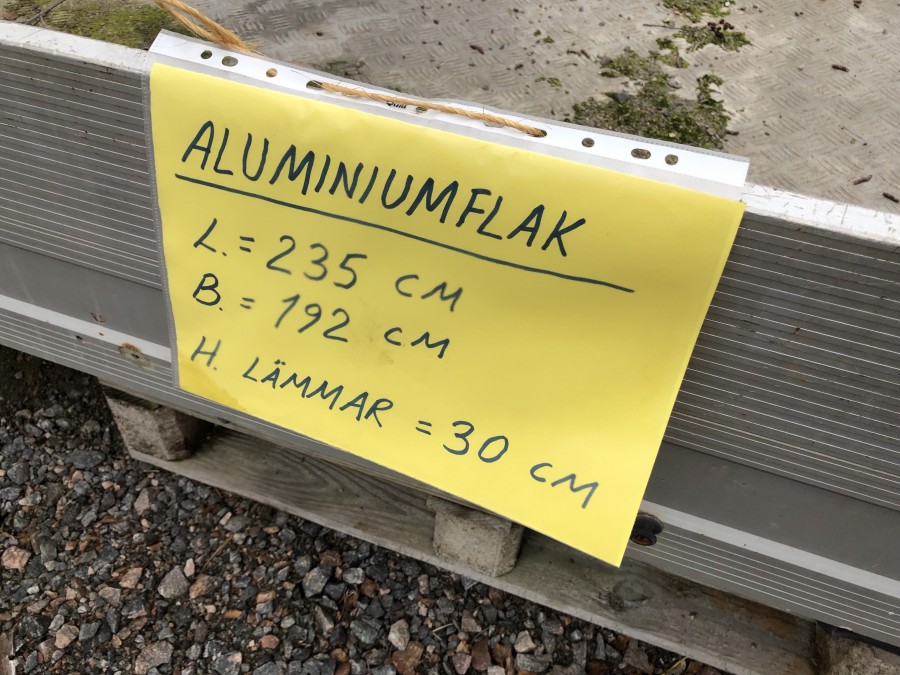 ALUMINIUMFLAK
L. = 235 CM
B. = 192 CM
H. LÄMMAR = 30 CM